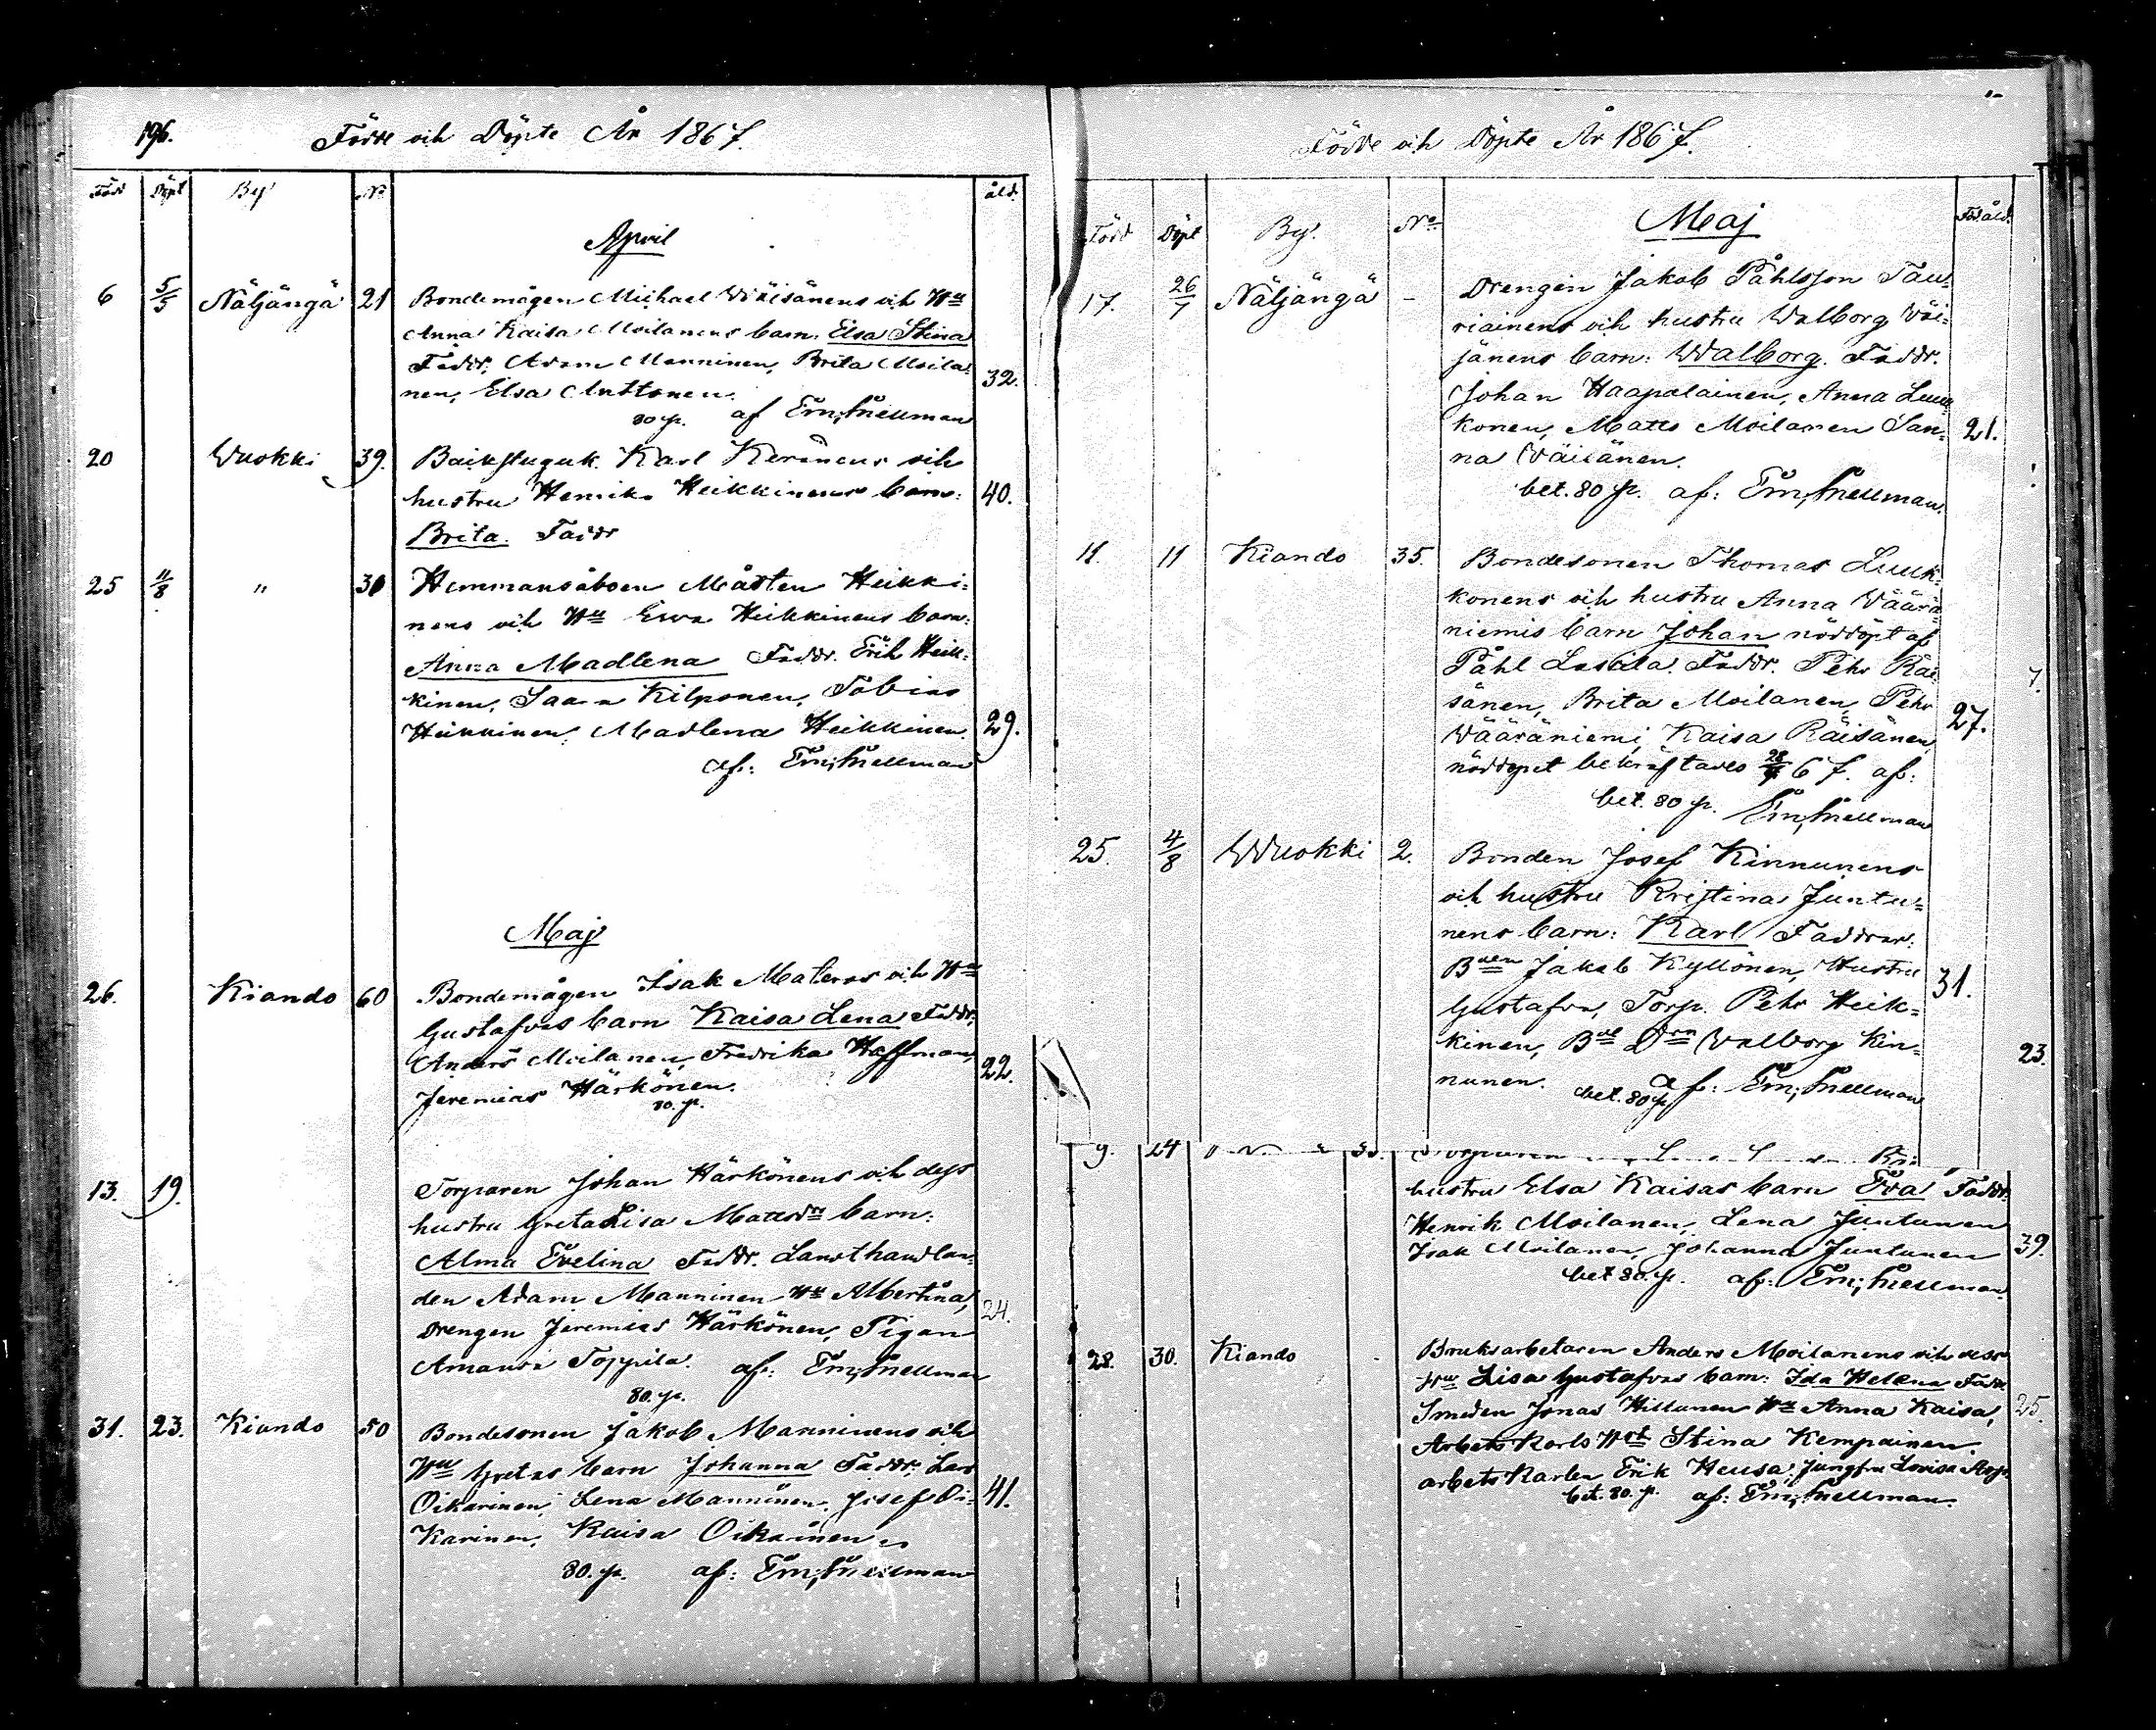 196.
Födde och Döpte År 1867.
Född Döpt By No åld.
April
6 5/5 Näljängä 21 Bondemågen Michael Wäisänens och Hu
Anna Kaisa Moilanens barn. Elsa Stina
Faddr. Adam Manninen, Brita Moila-
nen, Elsa Anttonen. 32.
80 p. af Em; Snellman
20 Wuokki 39. Karl Keränens och
hustru Henrika Heikkinens barn: 40.
Brita. Faddr
25 11/8 " 30 Hemmansåboen Mårten Heikki-
nens och Hu Ewa Heikkinens barn:
Anna Madlena Faddr. Erik Heik-
kinen, Saara Kilponen, Tobias
Heikkinen, Madlena Heikkinen. 29.
af: Em; Snellman
Maj
26. Kiando 60 Bondemågen Isak Materos och Hu
Gustafvas barn Kaisa Lena Faddr.
Anders Moilanen, Fredrika Haffman, 22.
Jeremias Härkönen.
80. p.
13. 19. Torparen Johan Härkönens och dess
hustru Greta Lisa Mattsdr barn:
Alma Evelina Faddr. Landthandlan-
den Adam Manninen Hu Albertina, 24.
Drengen Jeremias Härkönen, Pigan
Amanda Toppila. af: Em; Snellman
80. p.
31. 23. Kiando 50 Bondesonen Jakob Manninens och
Hu Gretas barn Johanna Faddr. Lars
Oikarinen, Lena Manninen, Josef Oi- 41.
karinen, Kaisa Oikarinen
80. p. af: Em; Snellman
Födde och Döpte År 1867.
Född Döpt By. No Maj Föd. åld.
17. 26/7 Näljängä – Drengen Jakob Påhlsson Tau-
riainens och hustru Walborg Wäi-
sänens barn: Walborg. Faddr.
Johan Haapalainen, Anna Luuk-
konen, Matts Moilanen San- 21.
na Wäisänen.
bet. 80 p. af: Em; Snellman.
11. 11 Kiando 35. Bondesonen Thomas Luuk-
konens och hustru Anna Väärä-
niemis barn Johan nöddöpt af
Påhl Lassila. Faddr. Pehr Räi-
sänen, Brita Moilanen, Pehr 27.
Vääräniemi, Kaisa Räisänen,
nöddopet bekräftades 67. af:
bet. 80 p. Em; Snellman
7.
25. 4/8 Wuokki 2. Bonden Josef Kinnunens
och hustru Kristina Juntu-
nens barn: Karl Faddrar.
Bden Jakob Kyllönen, Hustru 31.
Gustafva, Torp. Pehr Heik-
kinen, Bde Drn Walborg Kin-
nunen. af: Em; Snellman
bet. 80 p.
23
9. 24
hustru Elsa Kaisas barn Eva Faddr.
Henrik Moilanen, Lena Juntunen
Isak Moilanen, Johanna Juntunen 39.
bet 80. p. af: Em; Snellman.
28. 30. Kiando Bruksarbetaren Anders Moilanens och dess
Hu Lisa Gustafvas barn: Ida Helena Faddr
Smeden Jonas Hiltunen Hu Anna Kaisa, 25.
Arbets Karls Stina Kempainen.
arbets Karlen Erik Heusa, Jungfru Lovisa
bet. 80. p. af: Em; Snellman.